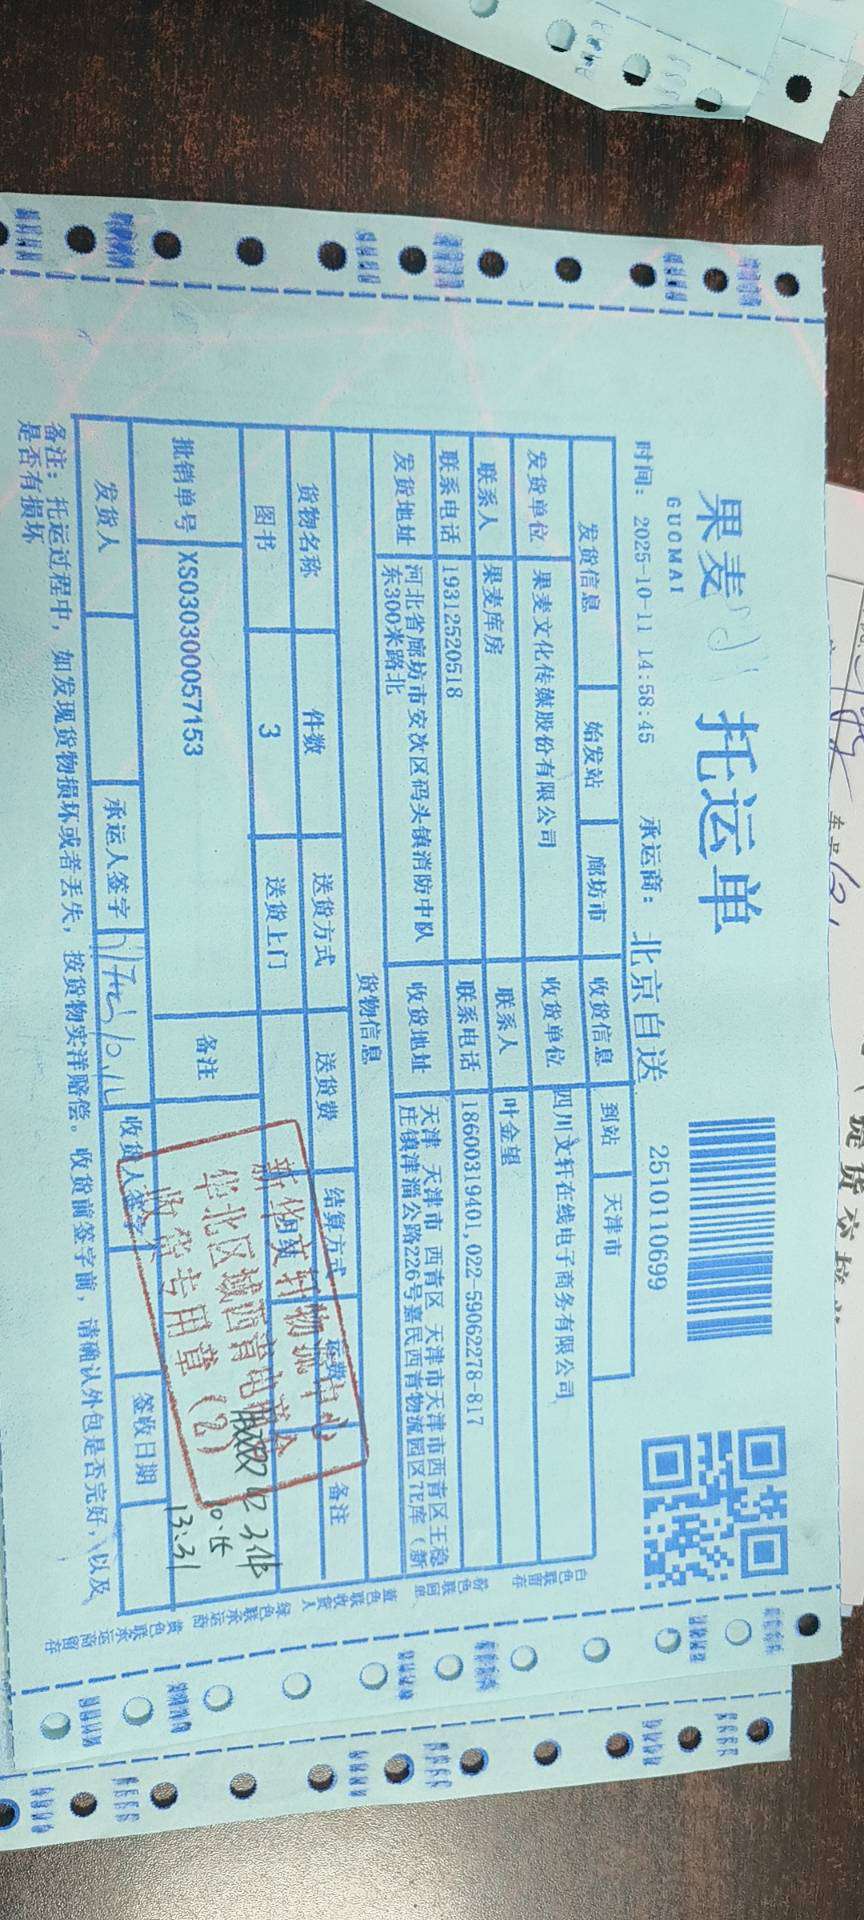 果麦 托运单
GUOMAI
2510110699
时间: 2025-10-11 14:58:45 承运商: 北京自送
发货信息 始发站 廊坊市 收货信息 到站 天津市
发货单位 果麦文化传媒股份有限公司 收货单位 四川文轩在线电子商务有限公司
联系人 果麦库房 联系人 叶金望
联系电话 19312520518 联系电话 18600319401,022-59062278-817
发货地址 河北省廊坊市安次区码头镇消防中队
东300米路北
收货地址 天津 天津市 西青区 天津市天津市西青区王稳
庄镇津淄公路226号嘉民西青物流园区7E库（新
货物信息
货物名称 件数 送货方式 送货费 结算方式 运费 备注
图书 3 送货上门
批销单号 XS030300057153 备注
新华文轩物流中心
华北区域西青电商仓
收货专用章（2）
10.15
13:31
发货人 承运人签字 收货人签字 签收日期
备注：托运过程中，如发现货物损坏或者丢失，按货物实洋赔偿。收货前签字前，请确认外包是否完好，以及
是否有损坏
白色联留存
粉色联回单
蓝色联收货人
绿色联承运商
黄色联承运商留存